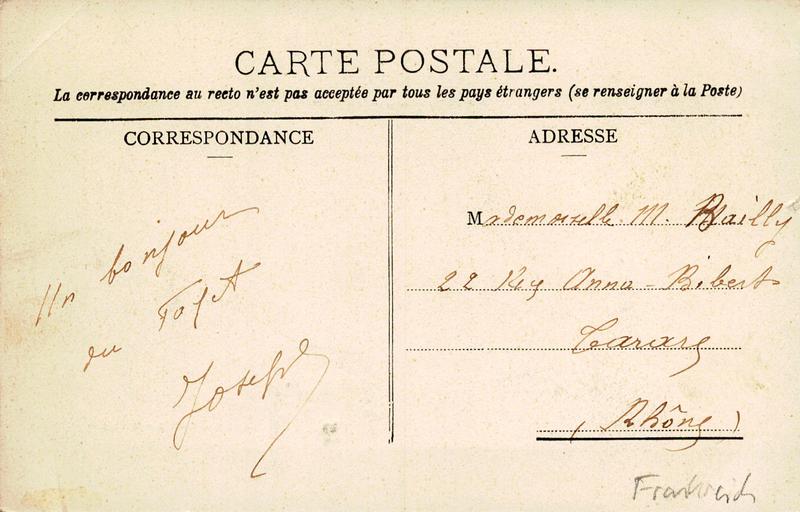 CARTE POSTALE.
La correspondance au recto n'est pas acceptée par tous les pays étrangers (se renseigner à la Poste)
CORRESPONDANCE
Un bonjour
du
Joseph
ADRESSE
Mademoiselle M. Bailly
22 Rue Anna - Bibert
Tarare
(Rhône)
Frankreich